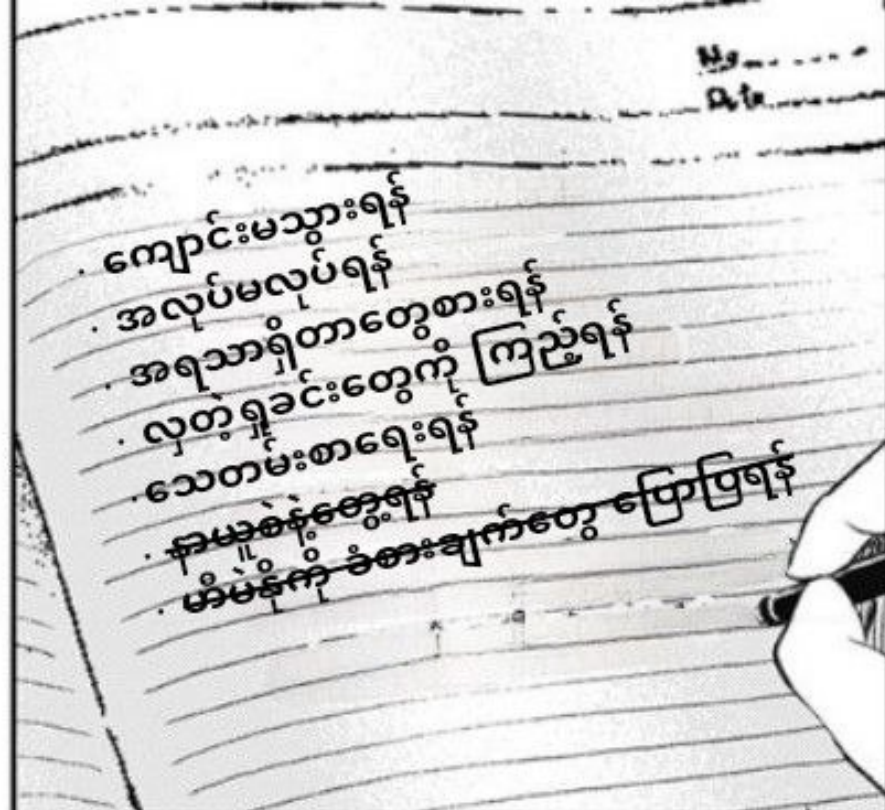 No.
Date
· ကျောင်းမသွားရန်
· အလုပ်မလုပ်ရန်
· အရသာရှိတာတွေစားရန်
· လှတဲ့ရှုခင်းတွေကို ကြည့်ရန်
· သေတမ်းစာရေးရန်
· နာယူစဲနဲ့တွေ့ရန်
· ဟိမဲနိုကို ခံစားချက်တွေ ပြောပြရန်